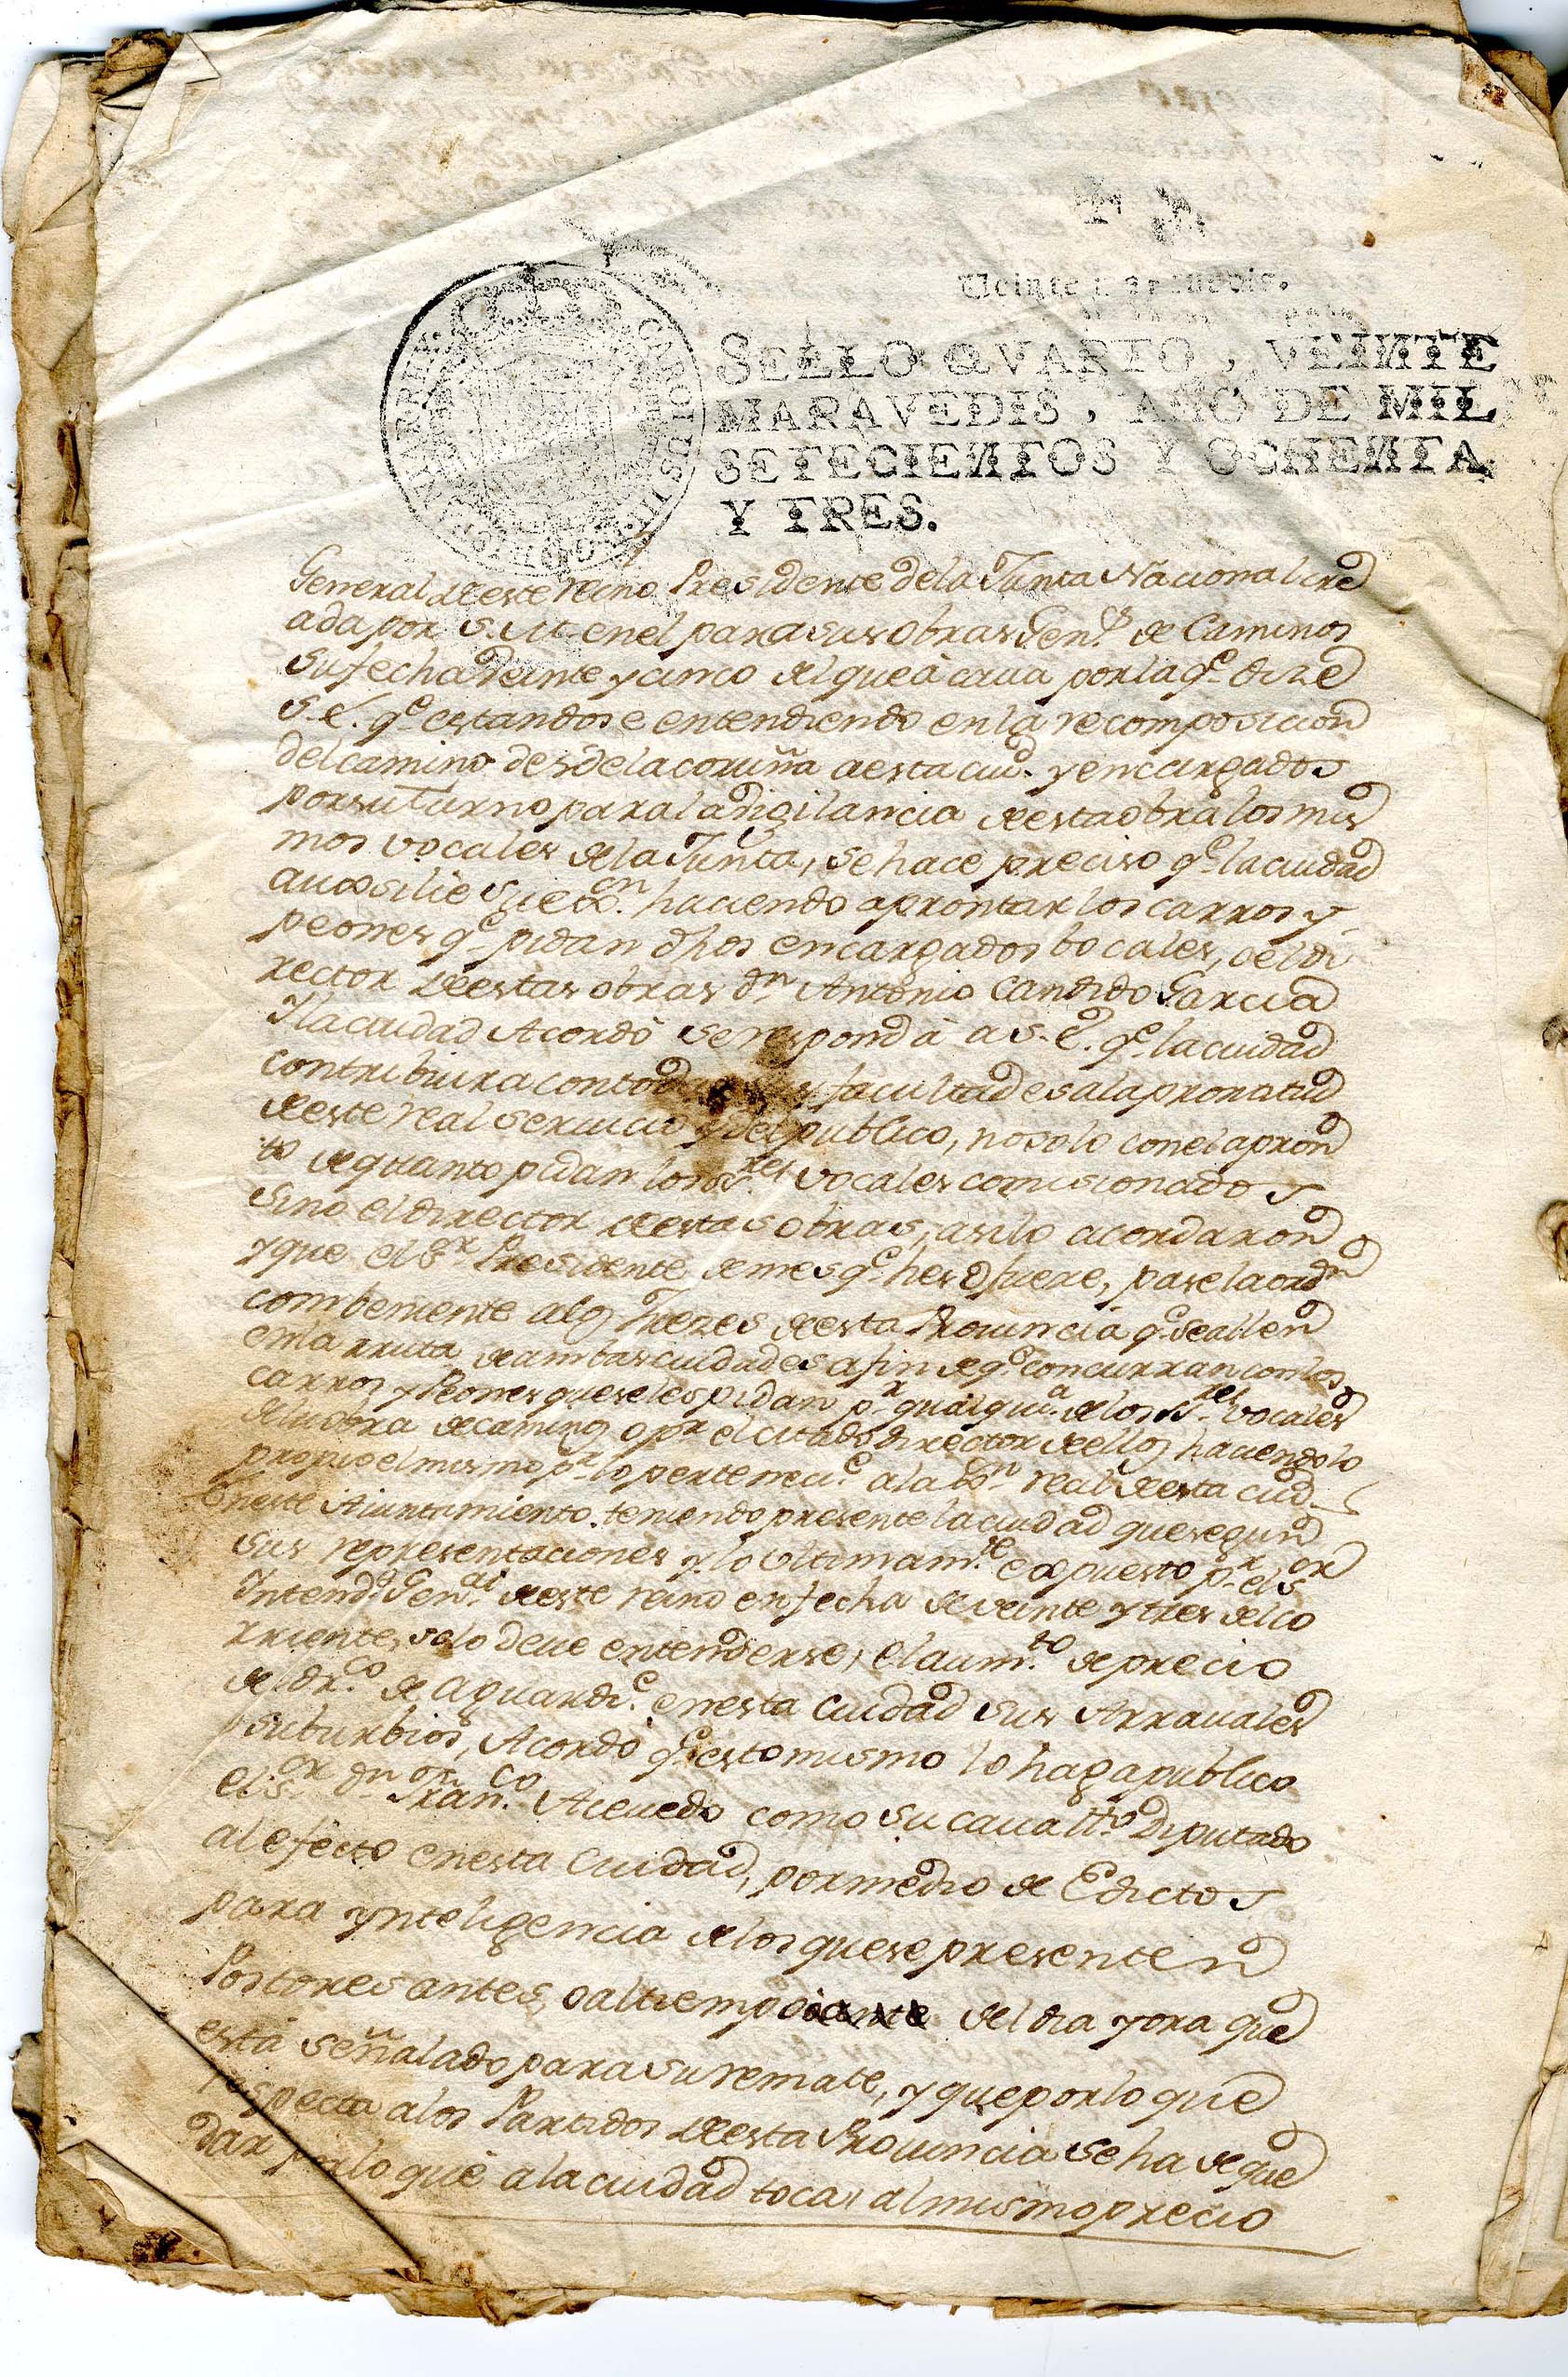 Veinte maravedis.
SELLO QVARTO, VEINTE
MARAVEDIS, AÑO DE MIL
SETECIENTOS Y OCHENTA
Y TRES.
CAROLUS III
General de este reino Presidente de la Junta Nacional cre
ada por S. M. en el para sus obras Gen.es de Caminos
su fecha Veinte y cinco del que acava por la q.e dize
S. E. q.e estandose entendiendo en la recomposicion
del camino desde la coruña a esta ciud.d y encargados
por su turno para la vigilancia de esta obra los mis
mos vocales de la Junta, se hace preciso q.e la ciudad
auxsilie su ex.on haciendo aprontar los carros y
peones q.e pidan dhos encargados bocales, o el di
rector de estas obras d.n Antonio Candido Garcia
Y la ciudad Acordó se responda a S. E. q.e la ciudad
contribuira con todas sus facultades a la prontitud
de este real servicio y del publico, no solo con el apron
to de quanto pidan los ss.res vocales comisionados
sino el director de estas obras, asi lo acordaron
y que el s.r Presidente de mes q.e hes o fuere, pase la ord.n
combeniente a los Juezes de esta Provincia q.e se allen
en la rruta de ambas ciudades a fin de q.e concurran con los
carros y Peones que se les pidan p.r qualqui.a de los ss.res vocales
de la obra de caminos o p.r el citado director de ellos haciendolo
propio el mismo p.r lo perteneci.e a la [...] real de esta ciud.d
En este Aiuntamiento teniendo presente la ciudad que segun
sus representaciones y lo ultimam.te expuesto p.r el s.or
Intend.e Gen.al de este reino en fecha de veinte y tres del co
rriente, solo deve entenderse, el aum.to de precio
del dr.co de aguardi.e en esta ciudad sus Arravales
suburbios, Acordó q.e esto mismo lo haga publico
el s.or d.n Fran.co Acevedo como su cavallº Diputado
al efecto en esta Ciudad, por medio de Edictos
para ynteligencia de los que se presenten
Postores antes, o al tiempo del dia y ora que
está señalado para su remate, y que por lo que
respecta a los Partidos de esta Provincia se ha de que
dar por lo que a la ciudad toca, al mismo precio